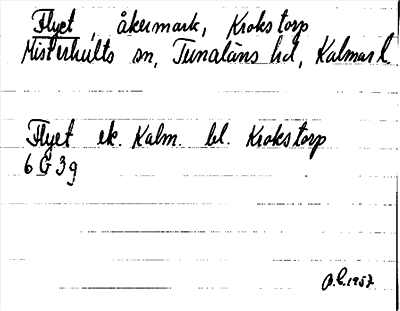 Flyet, åkermark, Krokstorp
Misterhults sn, Tunaläns hd, Kalmar l.
Flyet ek. Kalm. bl. Krokstorp
6 G 3 g
1957